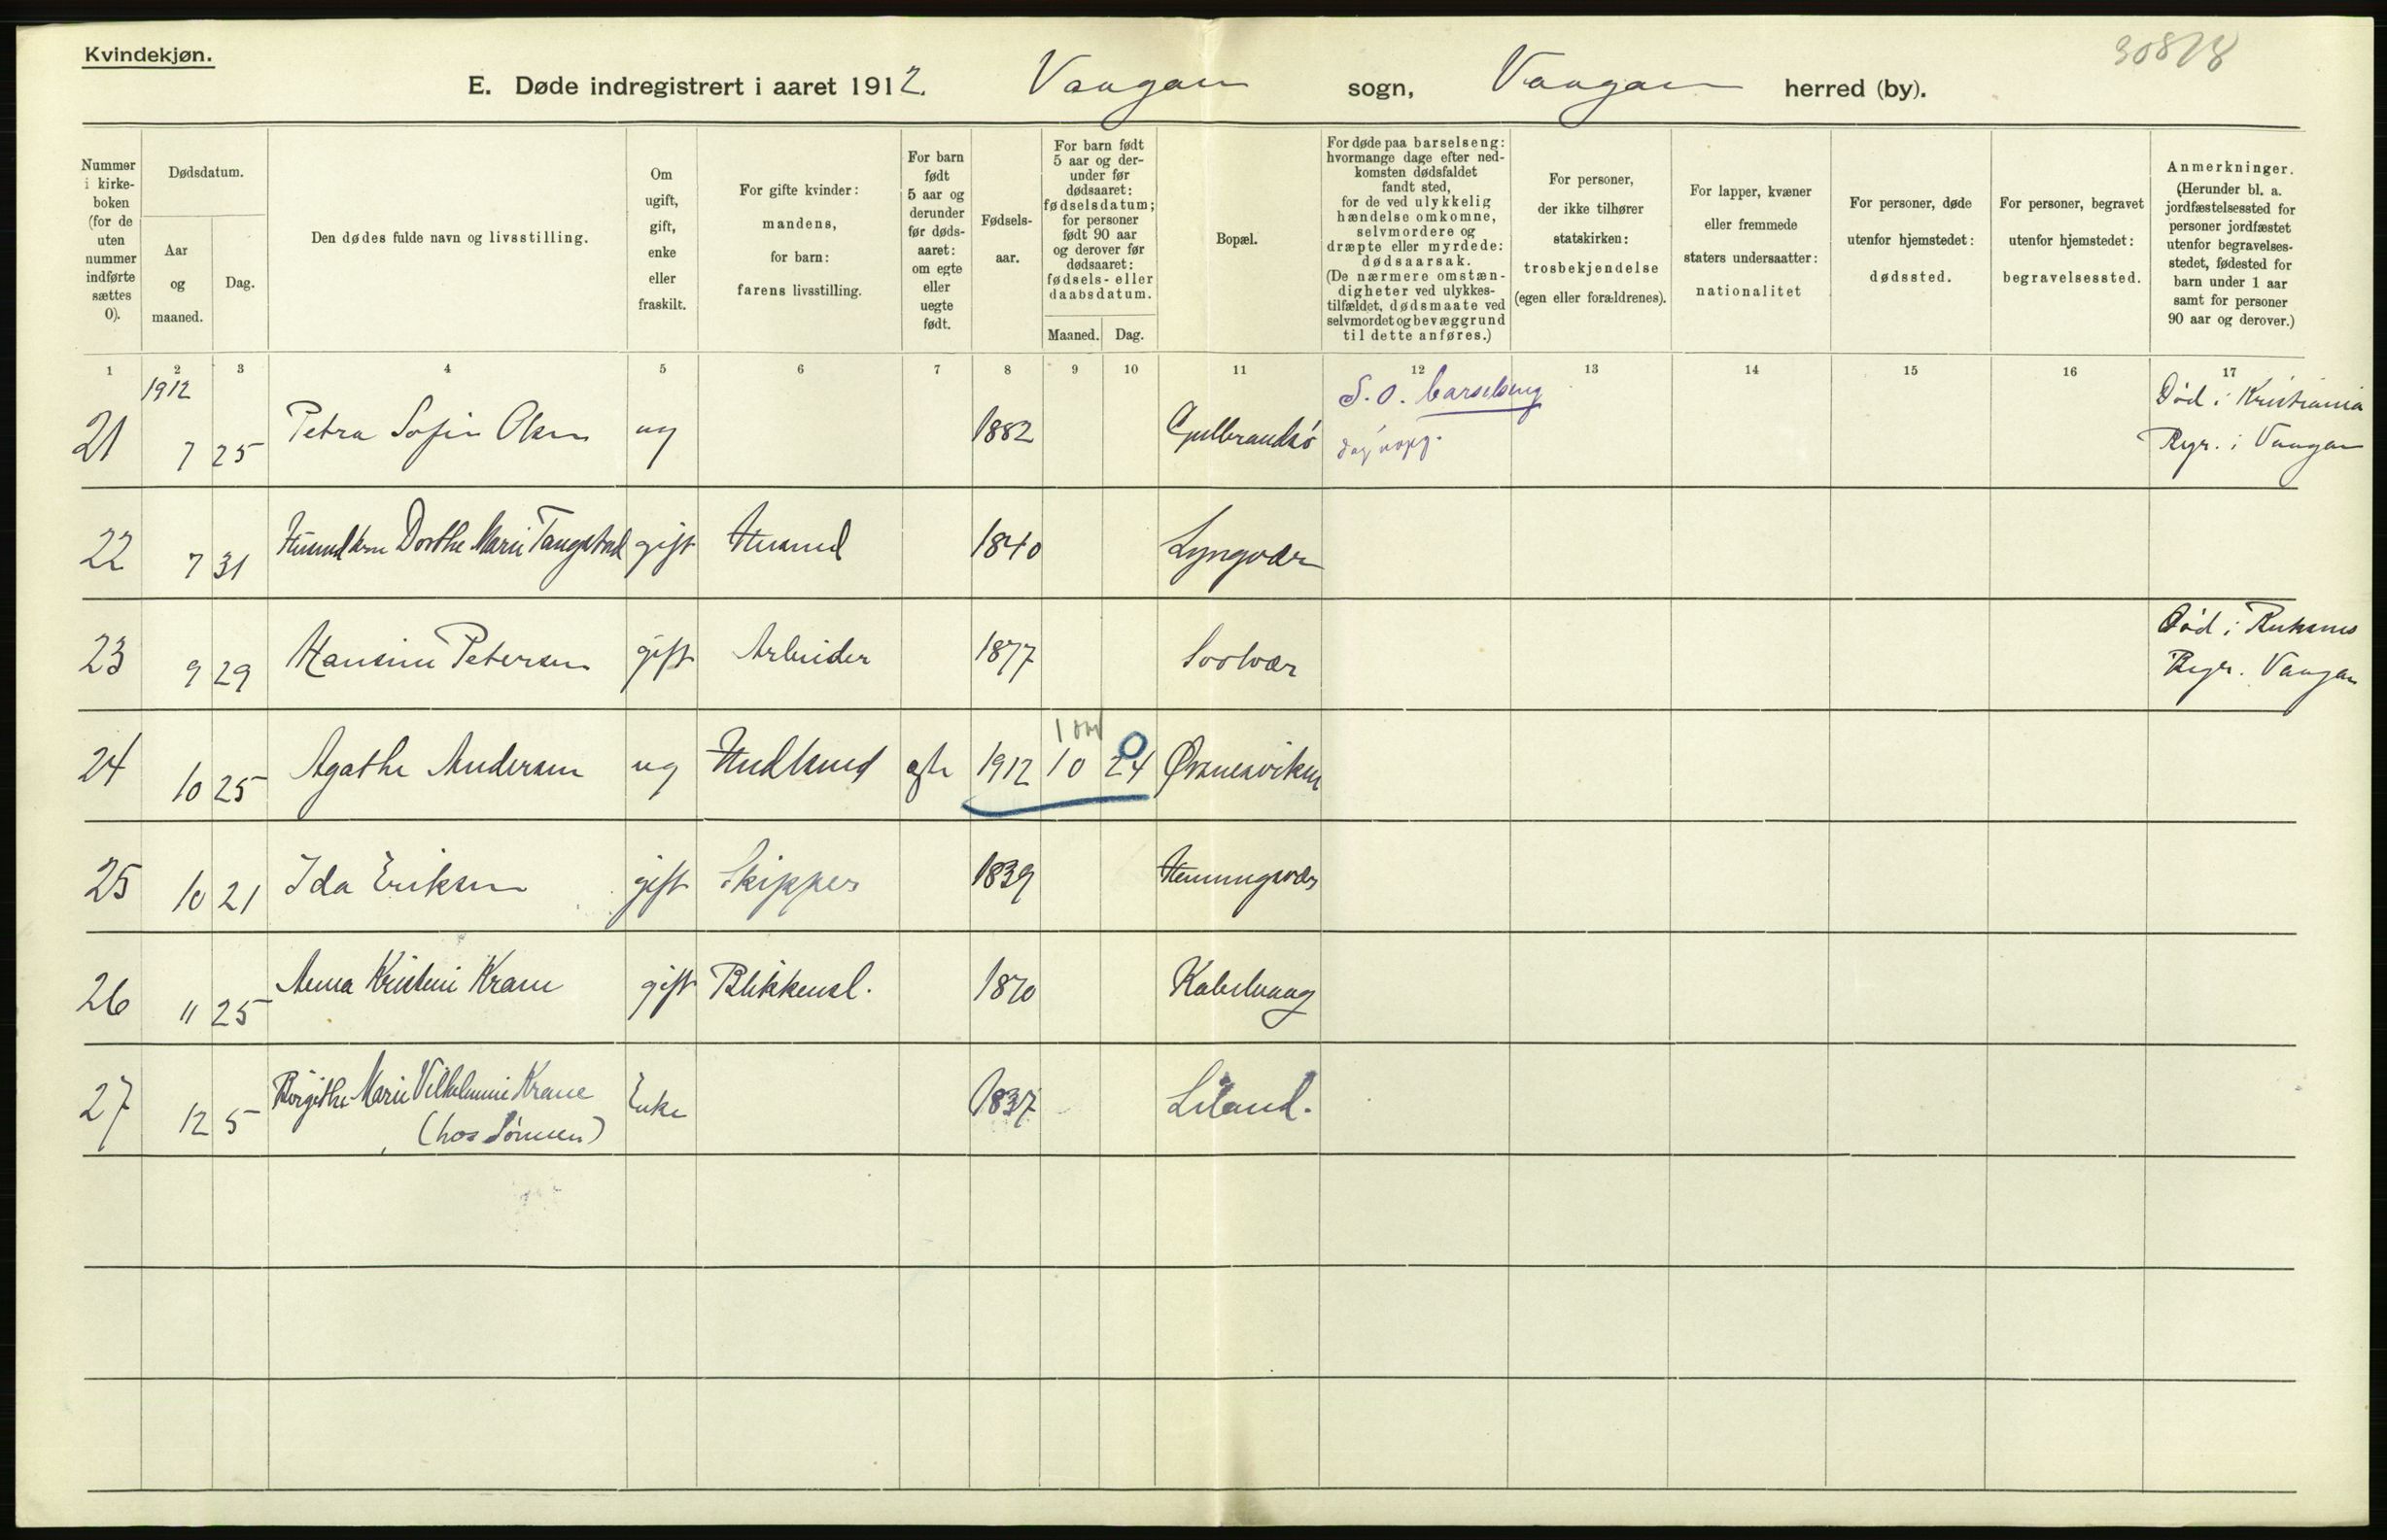 Kvindekjøn.
30878
E. Døde indregistrert i aaret 1912. Vaagan sogn, Vaagan herred (by).
Nummer i kirke-boken (for de uten nummer indførte sættes 0).
Dødsdatum.
Aar og maaned.
Dag.
Den dødes fulde navn og livsstilling.
Om ugift, gift, enke eller fraskilt.
For gifte kvinder: mandens, for barn: farens livsstilling.
For barn født 5 aar og derunder før døds-aaret: om egte eller uegte født.
Fødsels-aar.
For barn født 5 aar og der-under før dødsaaret: fødselsdatum; for personer født 90 aar og derover før dødsaaret: fødsels- eller daabsdatum.
Maaned. Dag.
Bopæl.
For døde paa barselseng: hvormange dage efter ned-komsten dødsfaldet fandt sted, for de ved ulykkelig hændelse omkomne, selvmordere og dræpte eller myrdede: dødsaarsak. (De nærmere omstæn-digheter ved ulykkes-tilfældet, dødsmaate ved selvmordet og bevæggrund til dette anføres.)
For personer, der ikke tilhører statskirken: trosbekjendelse (egen eller forældrenes).
For lapper, kvæner eller fremmede staters undersaatter: nationalitet
For personer, døde utenfor hjemstedet: dødssted.
For personer, begravet utenfor hjemstedet: begravelsessted.
Anmerkninger. (Herunder bl. a. jordfæstelsessted for personer jordfæstet utenfor begravelses-stedet, fødested for barn under 1 aar samt for personer 90 aar og derover.)
1 2 3 4 5 6 7 8 9 10 11 12 13 14 15 16 17
1912
21 7 25 Petra Sofie Olsen ug 1882 Gulbrandsö S. O. barselseng Död i Kristiania
Begr. i Vaagan
22 7 31 Dorthe Marie Tangstad gift Husmd 1840 Lyngvær
23 9 29 Hansine Petersen gift Arbeider 1877 Svolvær Död i
Begr. Vaagan
24 10 25 Agathe Andersen ug egte 1912 10 24 Ørsnesviken
0
25 10 21 Ida Eriksen gift Skipper 1839 Henningsvær
26 11 25 Anna Kristine Krane gift Blikkensl. 1870 Kabelvaag
27 12 5 Birgithe Marie Vilhelmine Krane Enke 1837 Liland.
(hos Sönnen)